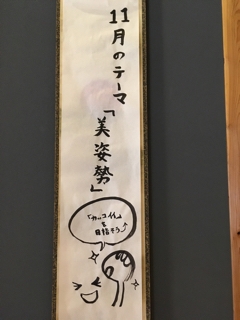 11月のテーマ
「美姿勢」
「カッコイイ」
を
目指そう